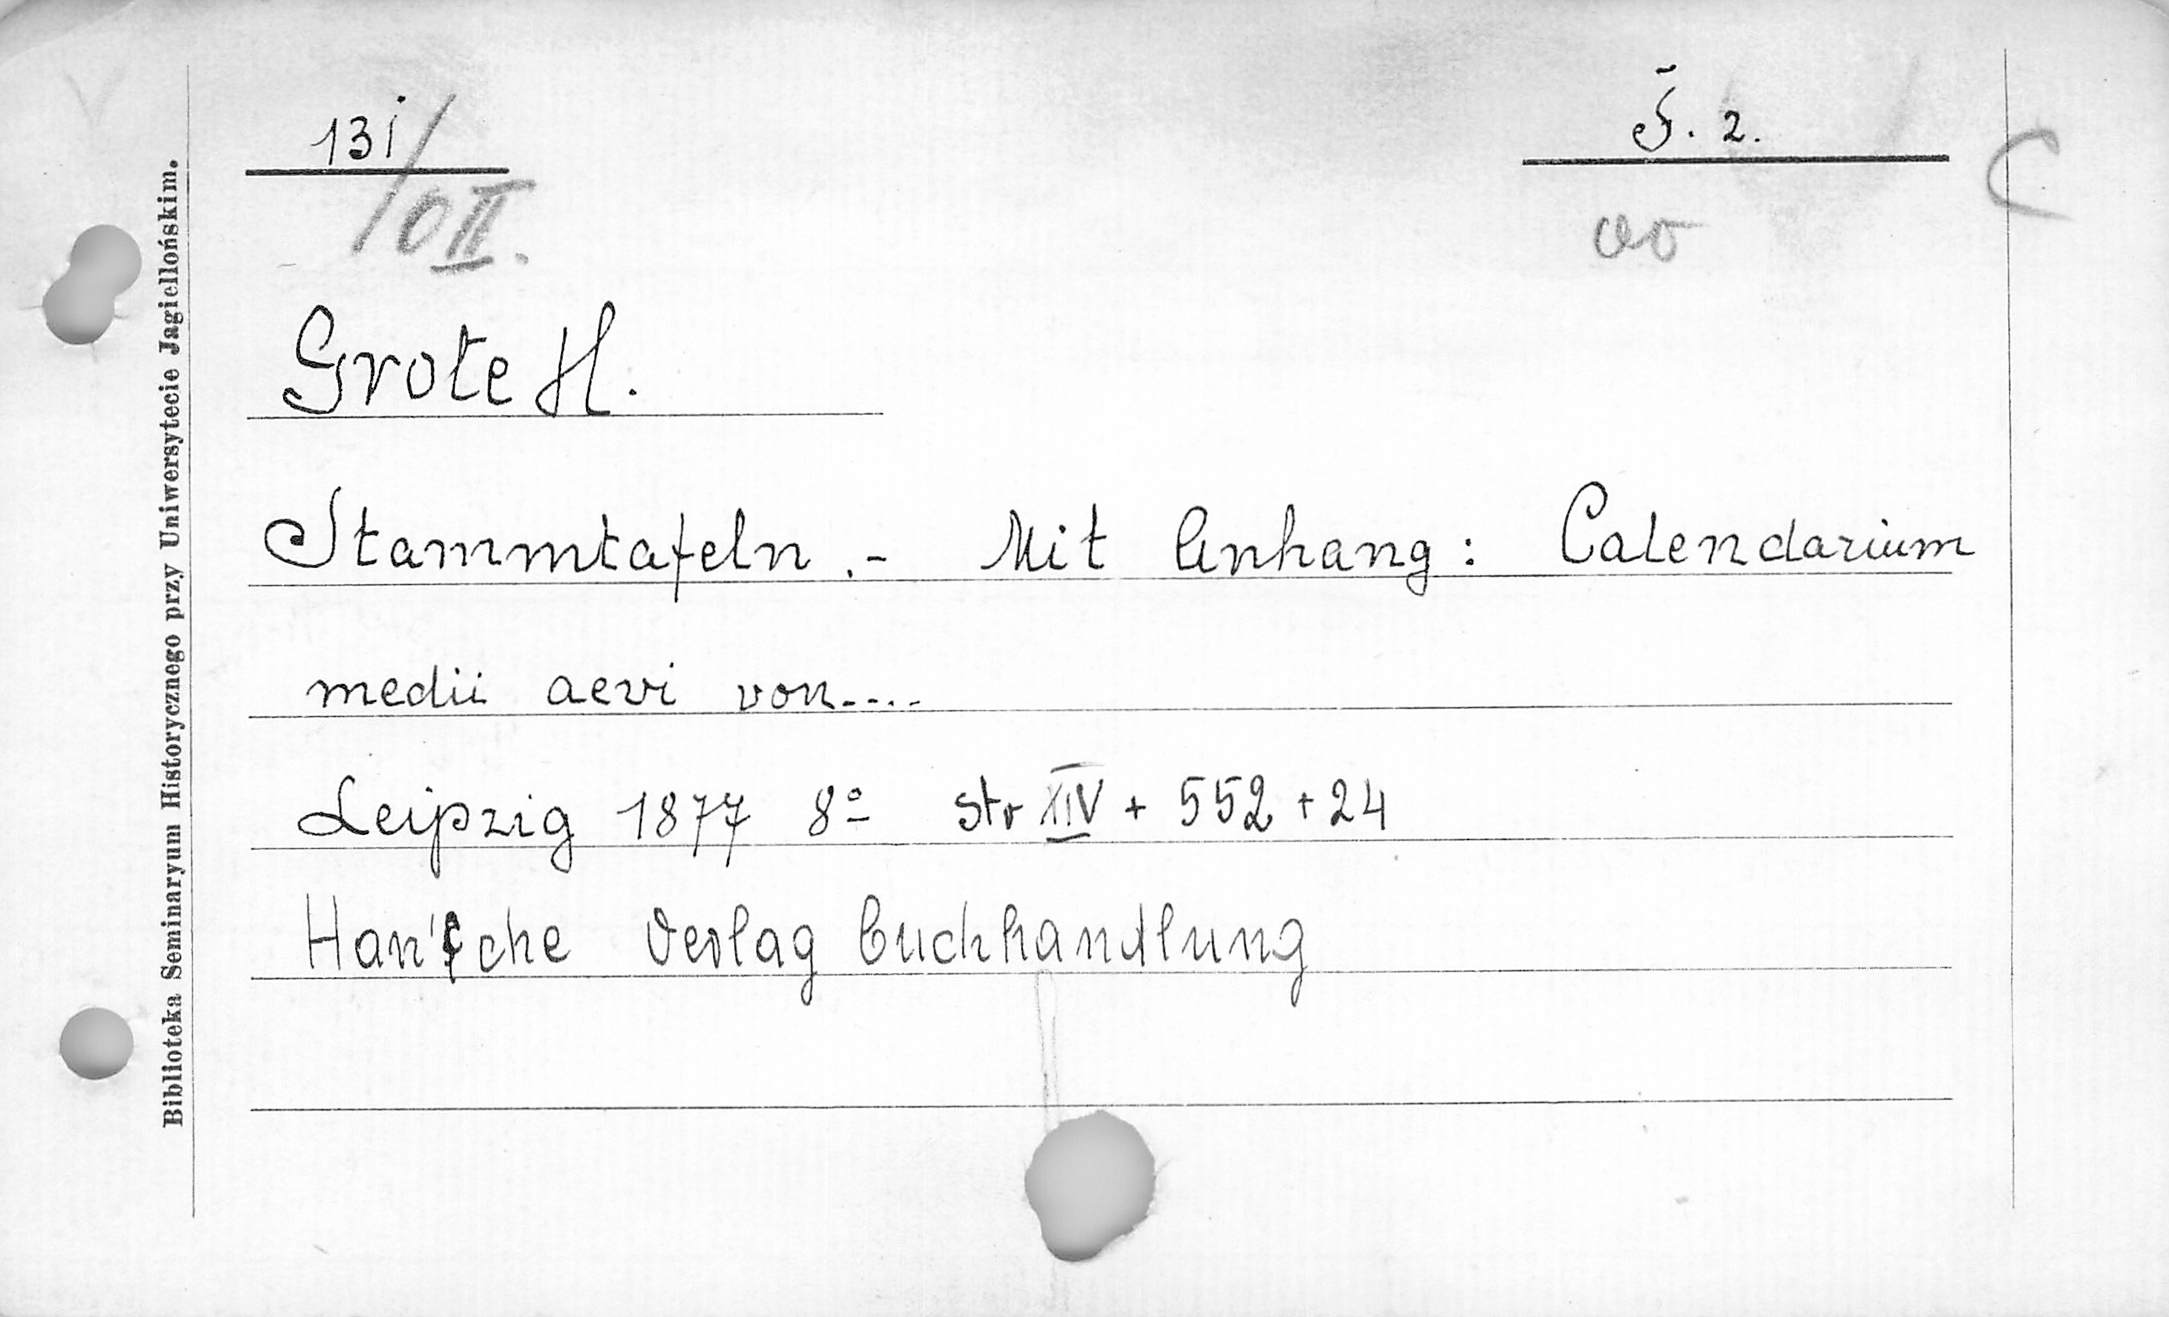 13i/
Ś. 2.
C
/0 II.
Grote H.
Stammtafeln .- Mit Anhang: Calendarium
medii aevi von....
Leipzig 1877 8º str XIV + 552 + 24
Han'sche Verlag buchhandlung
Biblioteka Seminaryum Historycznego przy Uniwersytecie Jagiellońskim.